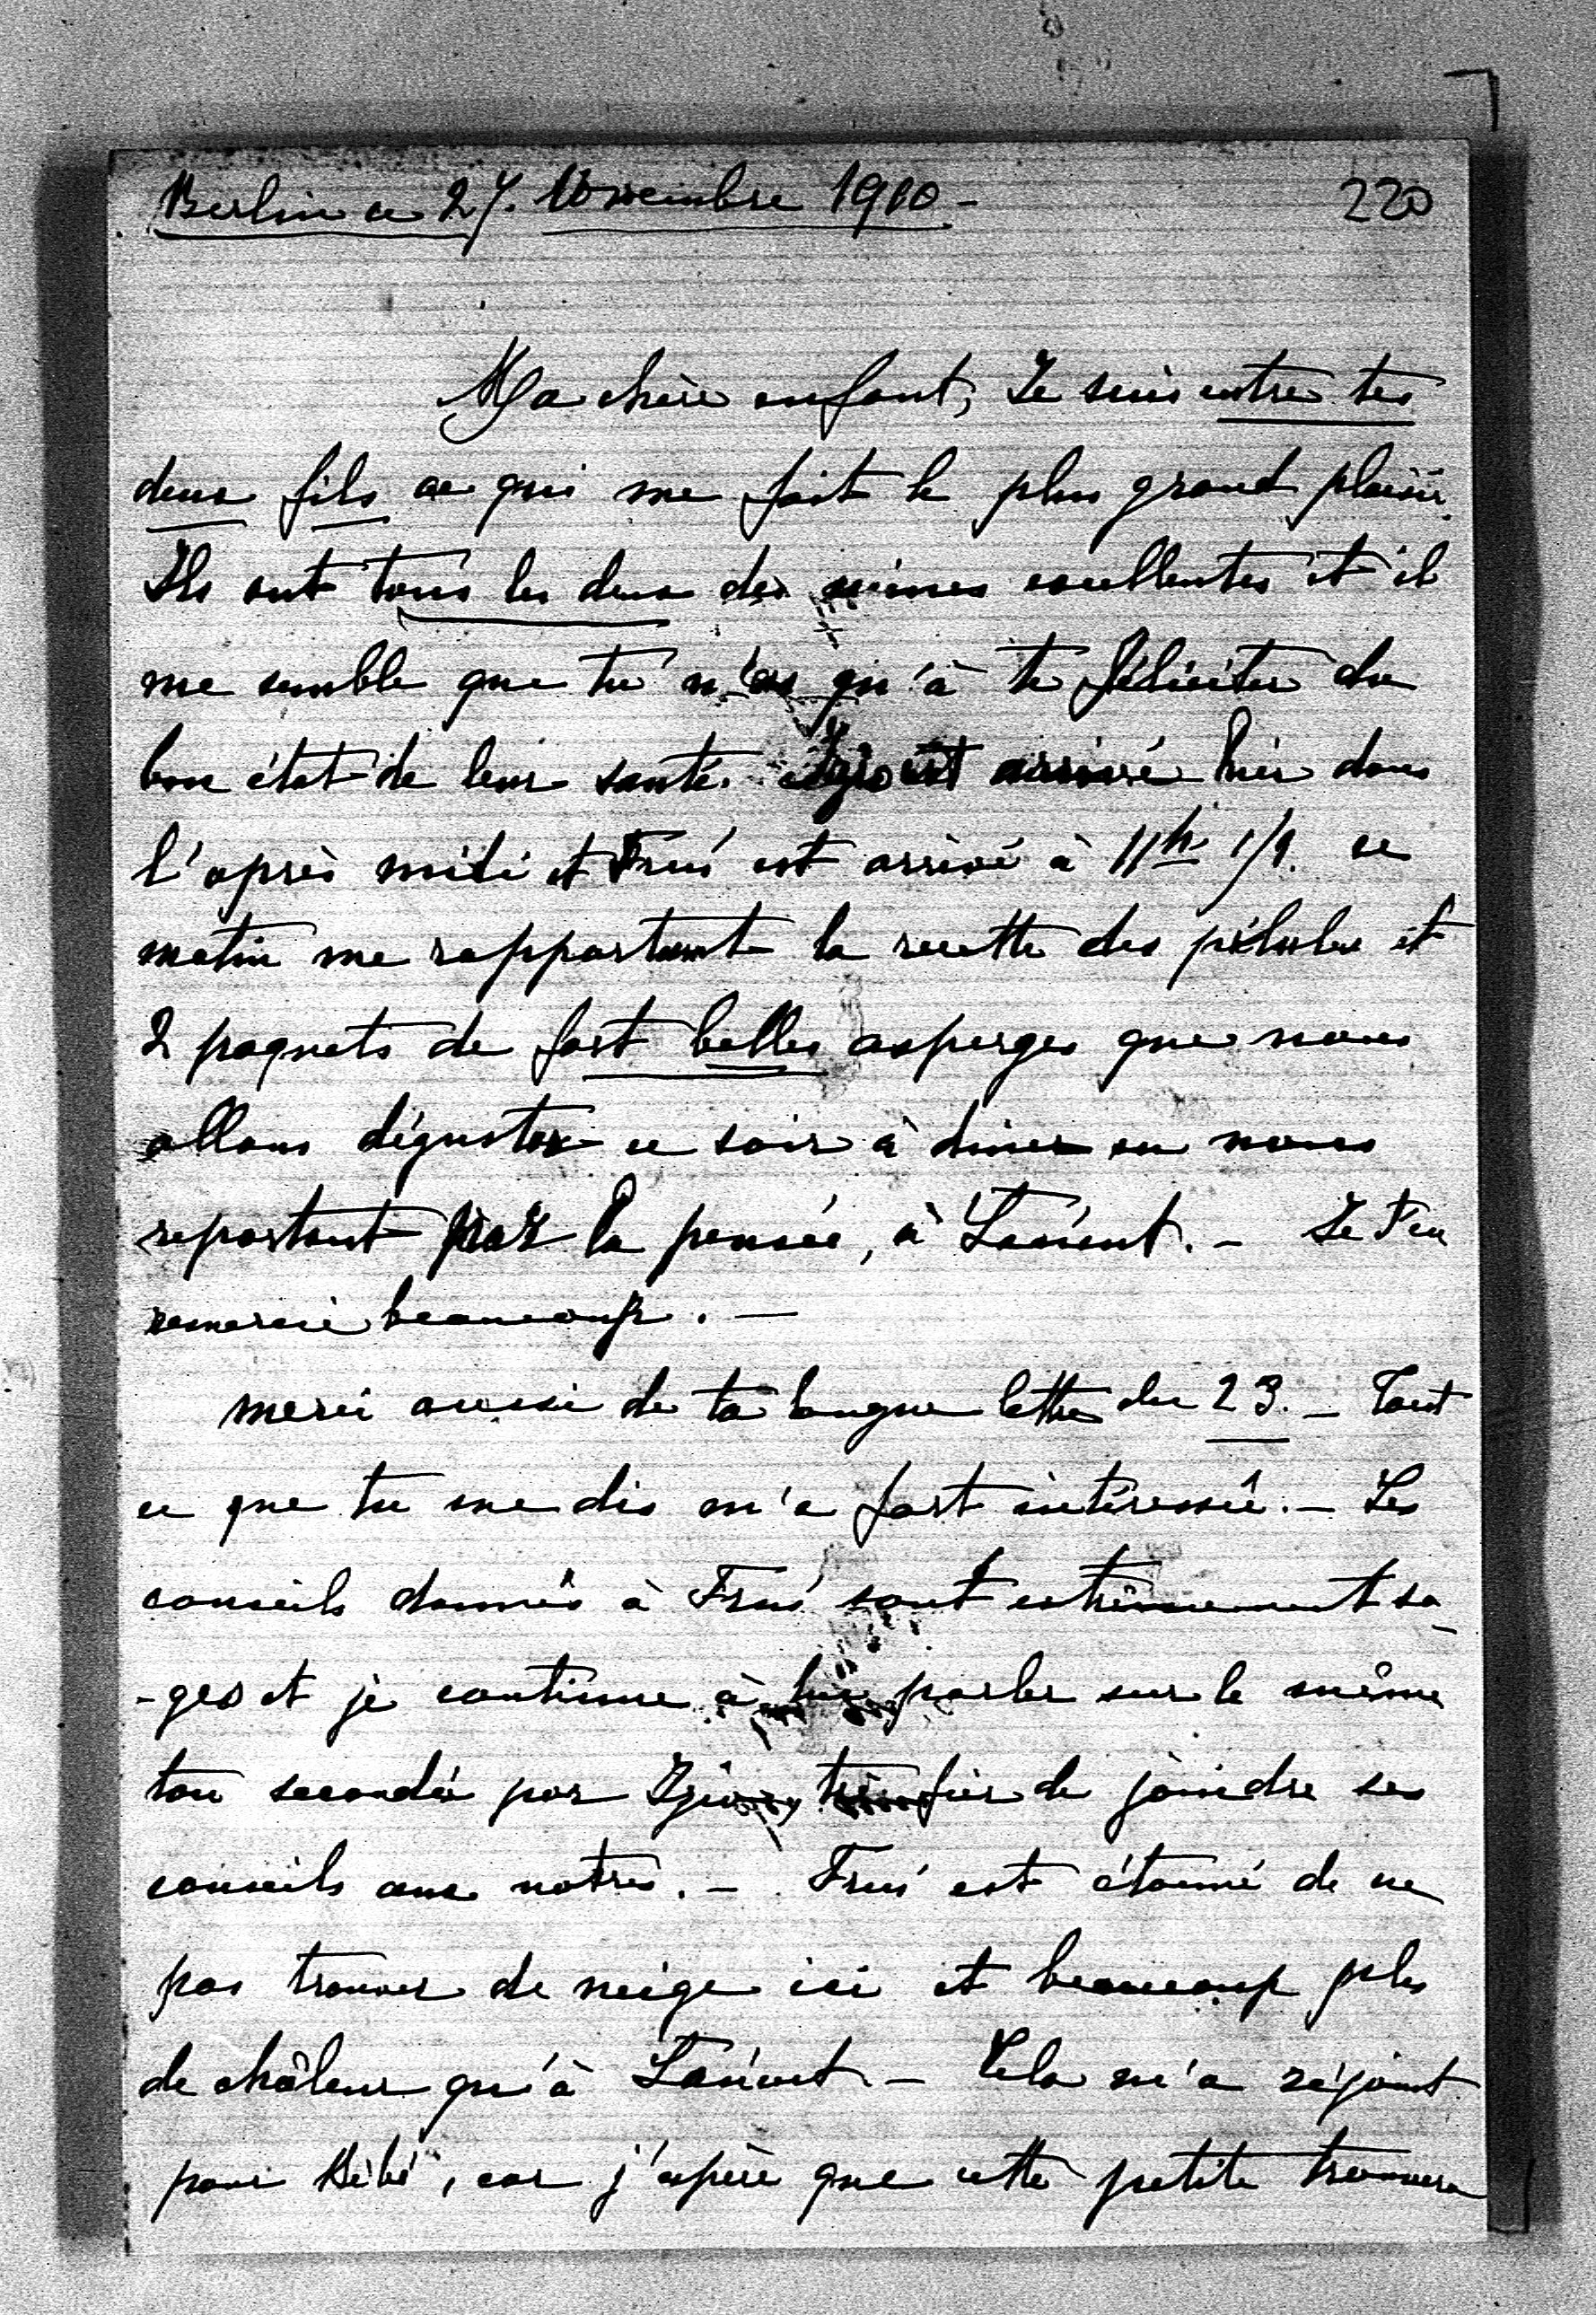 Berlin ce 27. Novembre 1910 -
220
Ma chère enfant, Je suis entre tes
deux fils ce qui me fait le plus grand plaisir.
Ils ont tous les deux des mines excellentes et il
me semble que tu n'as qu'à te féliciter du
bon état de leur santé. Izio est arrivé hier dans
l'après midi et Fruś est arrivé à 11h 1/2. ce
matin me rapportant la recette des pilules et
2 paquets de fort belles asperges que nous
allons déguster ce soir à diner en nous
reportant par la pensée, à Łańcut. - Je t'en
remercie beaucoup. -
Merci aussi de ta longue lettre du 23. - Tout
ce que tu me dis m'a fort intéressée. - Les
conseils donnés à Fruś sont extrêmement sa-
-ges et je continue à lui parler sur le même
ton secondée par Izio, très fier de joindre ses
conseils aux notres. - Fruś est étonné de ne
pas trouver de neige ici et beaucoup plus
de châleur qu'à Łańcut. - Cela m'a réjouit
pour Bébé, car j'espère que cette petite trouvera